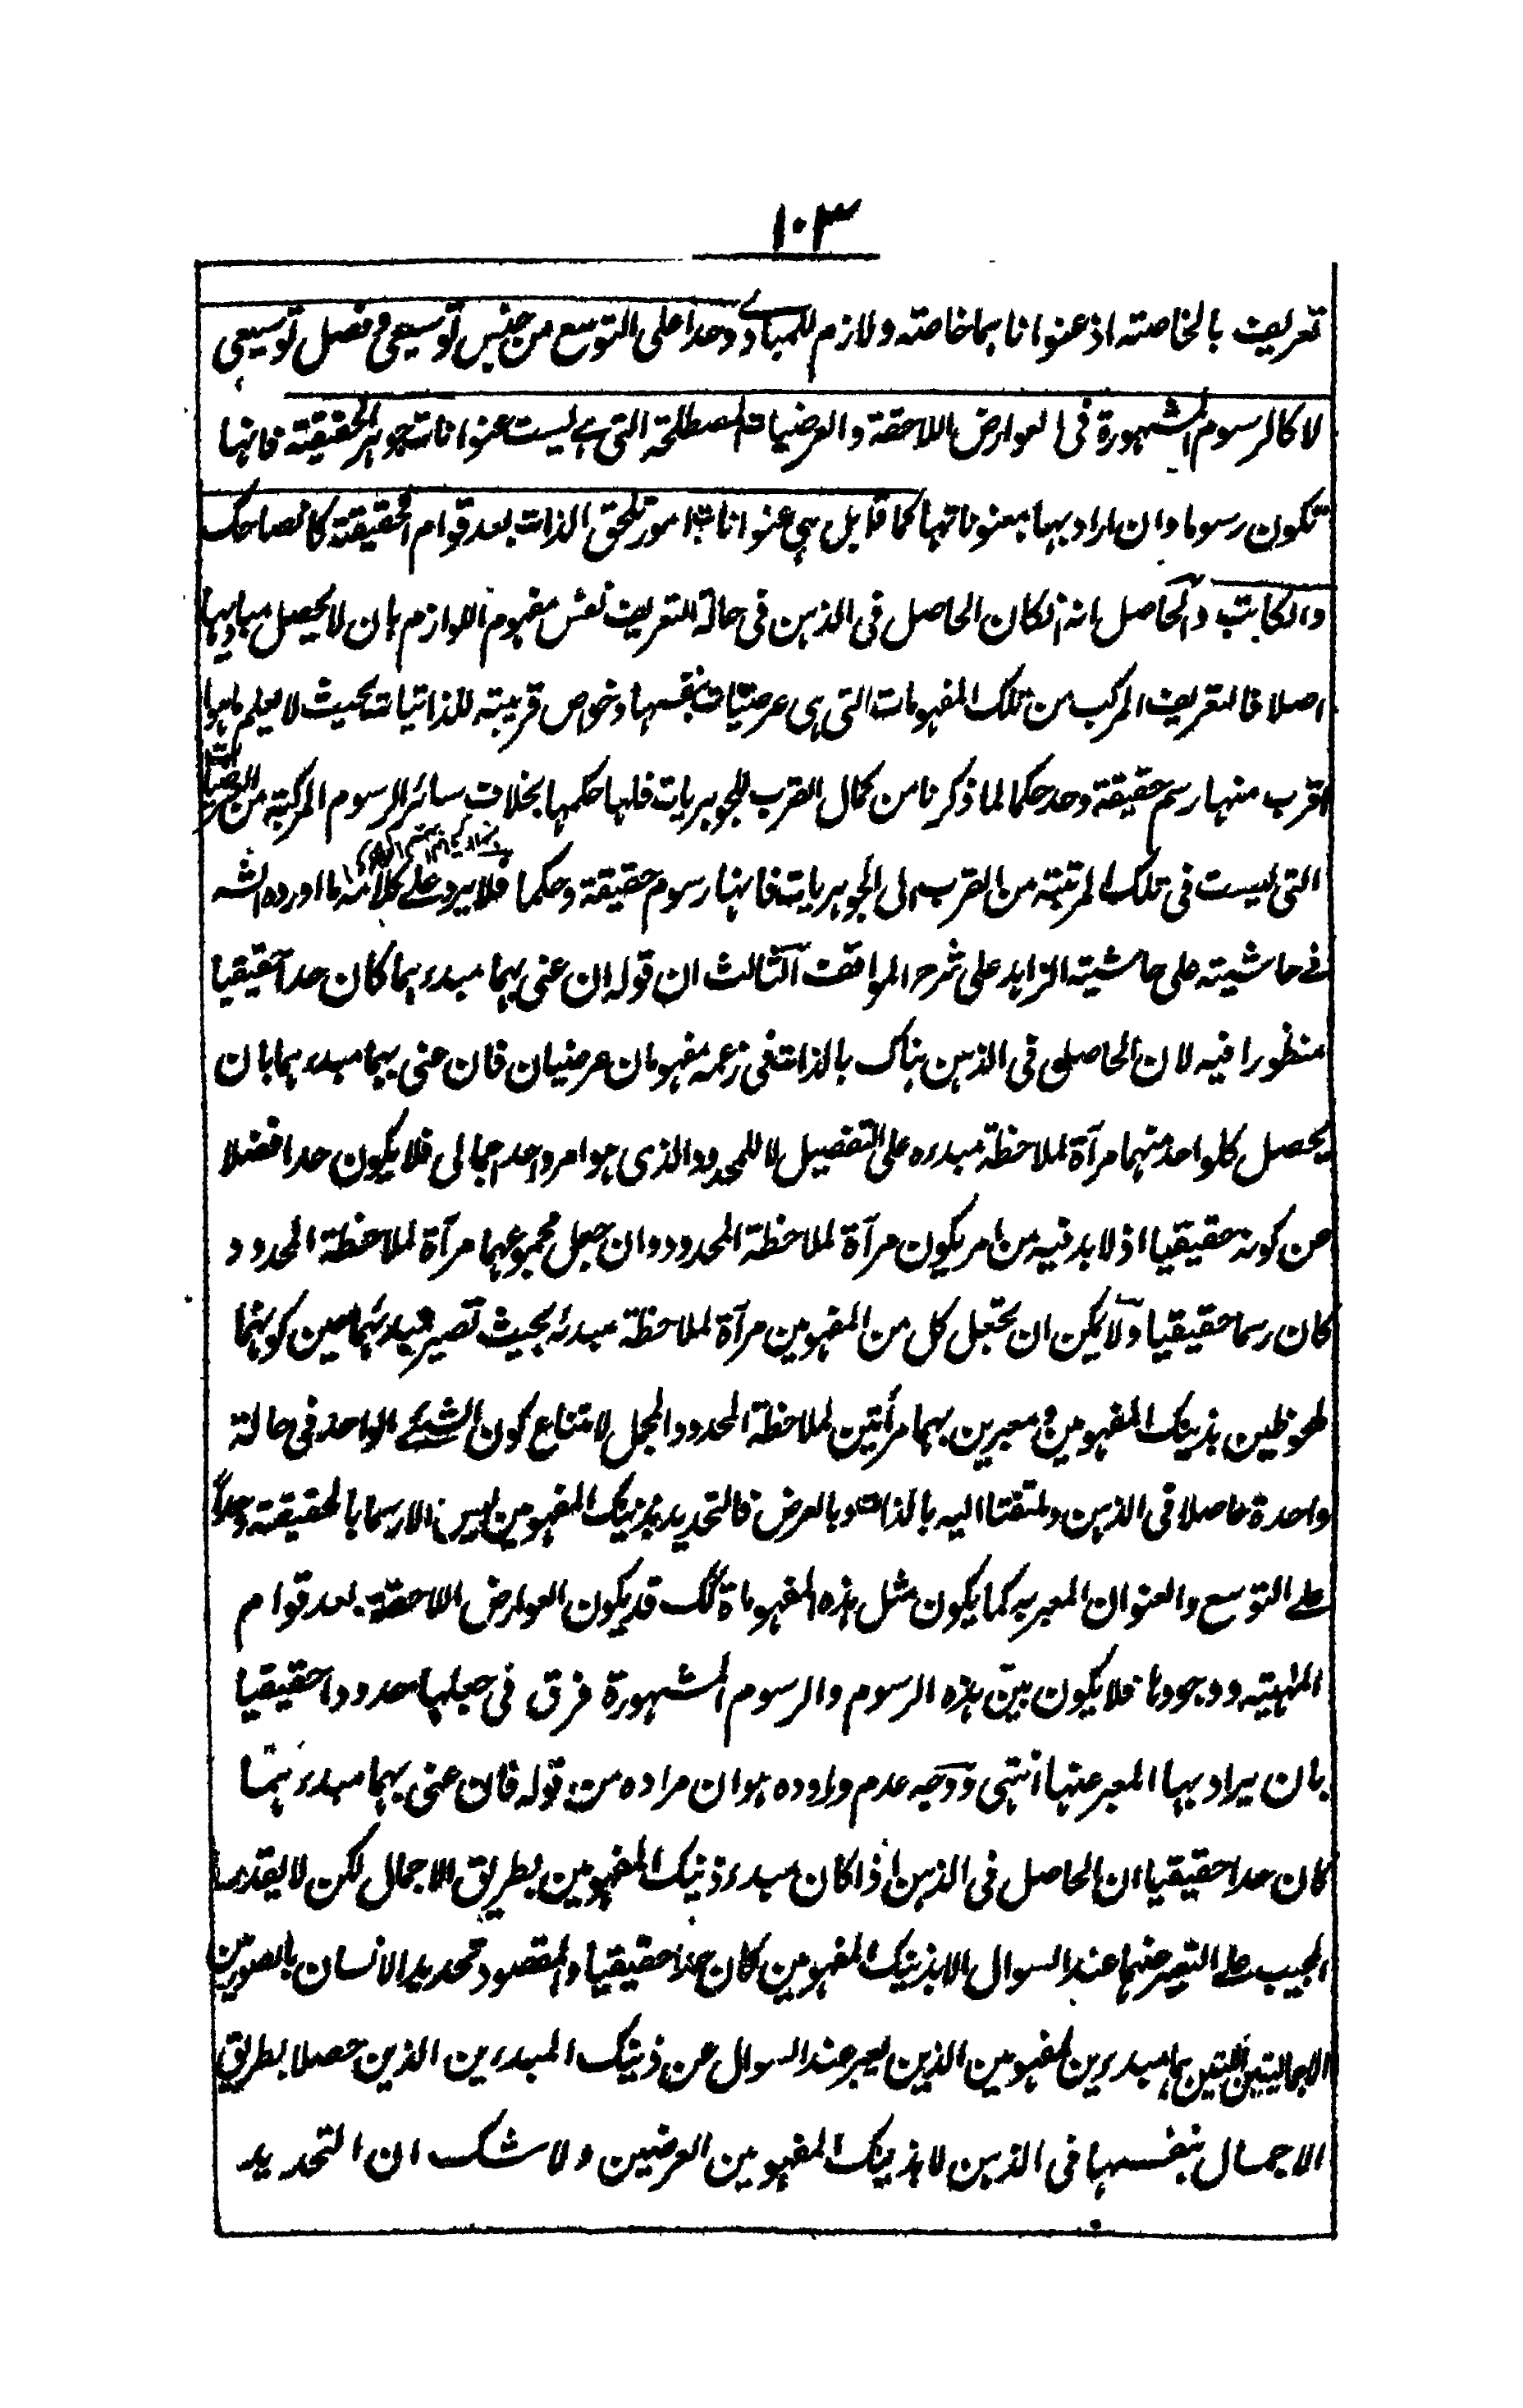 ١٠٣
تعريف بالخاصته اذ عنوانا بما خاصته ولازم للمبادے وحدا على التوسع من جنس توسيعى وفصل توسيعى
لا كالرسوم المشهورة فى العوارض اللاحقة والعرضيات المصطلحة التى هے ليست عنوانات جوهر الحقيقته فانها
تكون رسوما وان اراد بها معنوناتها كما قابل هى عنوانات امور تلحق الذات بعد قوام الحقيقته كالضاحك
والكاتب والحاصل انه انكان الحاصل فى الذهن فى حالة التعريف نفس مفهوم اللوازم بان لا يحصل مباديها
اصلا فالتعريف المركب من تلك المفهومات التى هى عرضيات بنفسها وخواص قريبته للذاتيات بحيث لا يعلم ما هوا
اقرب منها رسم حقيقة وحد حكما لما ذكرنا من كمال القرب للجوهريات فلها حكمها بخلاف سائر الرسوم المركبته من العرضيات
التى ليست فى تلك المرتبته من القرب الى الجوهريات فانها رسوم حقيقة وحكما فلا يرد على كلامه ما اورده الشه
فے حاشيته على حاشيته الزاهد على شرح المواقف الثالث ان قوله ان عنى بهما مبدءهما كان حدا حقيقيا
منظورا فيه لان الحاصل فى الذهن هناك بالذات فى زعمه مفهومان عرضيان فان عنى بهما مبدءهما بان
يحصل كلواحد منهما مرآة لملاحظة مبدءه على التفصيل لا للمحدود الذى هو امر واحد اجمالى فلا يكون حدا فضلا
عن كونه حقيقيا اذ لا بد فيه من امر يكون مرآة لملاحظة المحدود وان جعل مجموعهما مرآة لملاحظة المحدود
كان رسما حقيقيا ولا يمكن ان يجعل كل من المفهومين مرآة لملاحظة مبدئه بحيث تصير مبدئهما حين كونهما
ملحوظين بذينك المفهومين ومعبرين بهما مرأتين لملاحظة المحدود المجمل لامتناع كون الشيئے الواحد فى حالة
واحدة حاصلا فى الذهن وملتفتا اليه بالذات وبالعرض فالتحديد بذينك المفهومين ليس الا رسما بالحقيقته وحداً
علے التوسع والعنوان المعبر به كما يكون مثل هذه المفهومات كك قد يكون العوارض اللاحقة بعد قوام
المهيته ووجودها فلا يكون بين هذه الرسوم والرسوم المشهورة فرق فى جعلها حدودا حقيقيا
بان يراد بها المعبر عنها انتهى ووجه عدم وروده هو ان مراده من قوله فان عنى بهما مبدءهما
كان حدا حقيقيا ان الحاصل فى الذهن اذا كان مبدء ذينك المفهومين بطريق الاجمال لكن لا يقدر
المجيب علے التعبير عنهما عند السوال الا بذينك المفهومين كان حدا حقيقيا والمقصود تحديد الانسان بالصورتين
الاجماليتين اللتين هما مبدءين لمفهومين الذين يعبر عند السوال عن ذينك المبدءين الذين حصلا بطريق
الاجمال بنفسها فى الذهن لا بذينك المفهومين العرضين ولا شك ان التحديد